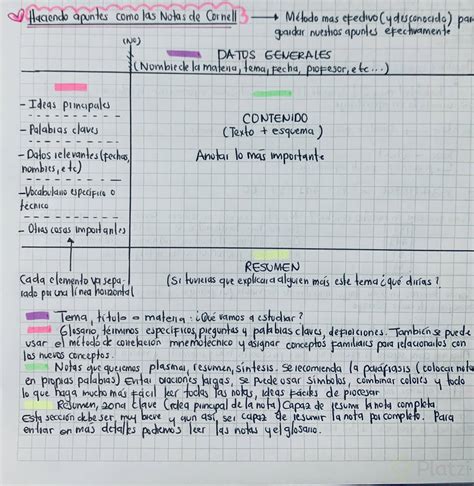 Haciendo apuntes como las Notas de Cornell → Método mas efectivo (y desconocido) par
guardar nuestros apuntes efectivamente
(No)
DATOS GENERALES
(Nombre de la materia, tema, fecha, profesor, etc...)
- Ideas principales
- Palabras claves
- Datos relevantes (fechas,
nombres, etc)
- Vocabulario específico o
técnico
- Otras cosas importantes
CONTENIDO
(Texto + esquema)
Anotar lo más importante
Cada elemento va sepa-
rado por una línea horizontal
RESUMEN
(Si tuvieras que explicar a alguien más este tema ¿qué dirías?
Tema, título o materia: ¿Qué vamos a estudiar?
Glosario, términos específicos, preguntas y palabras claves, definiciones. También se puede
usar el método de correlación mnemotécnico y asignar conceptos familiares para relacionarlos con
los nuevos conceptos.
Notas que queremos plasmar, resumen, síntesis. Se recomienda la paráfrasis (colocar nota
en propias palabras) Evitar oraciones largas, se puede usar símbolos, combinar colores y todo
lo que haga mucho más fácil leer todas las notas, ideas fáciles de procesar
Resumen, zona clave (idea principal de la nota) Capaz de resumir la nota completa
Esta sección debe ser muy breve y aun así, ser capaz de resumir la nota por completo. Para
entrar en más detalles podemos leer las notas y el glosario.
Platzi